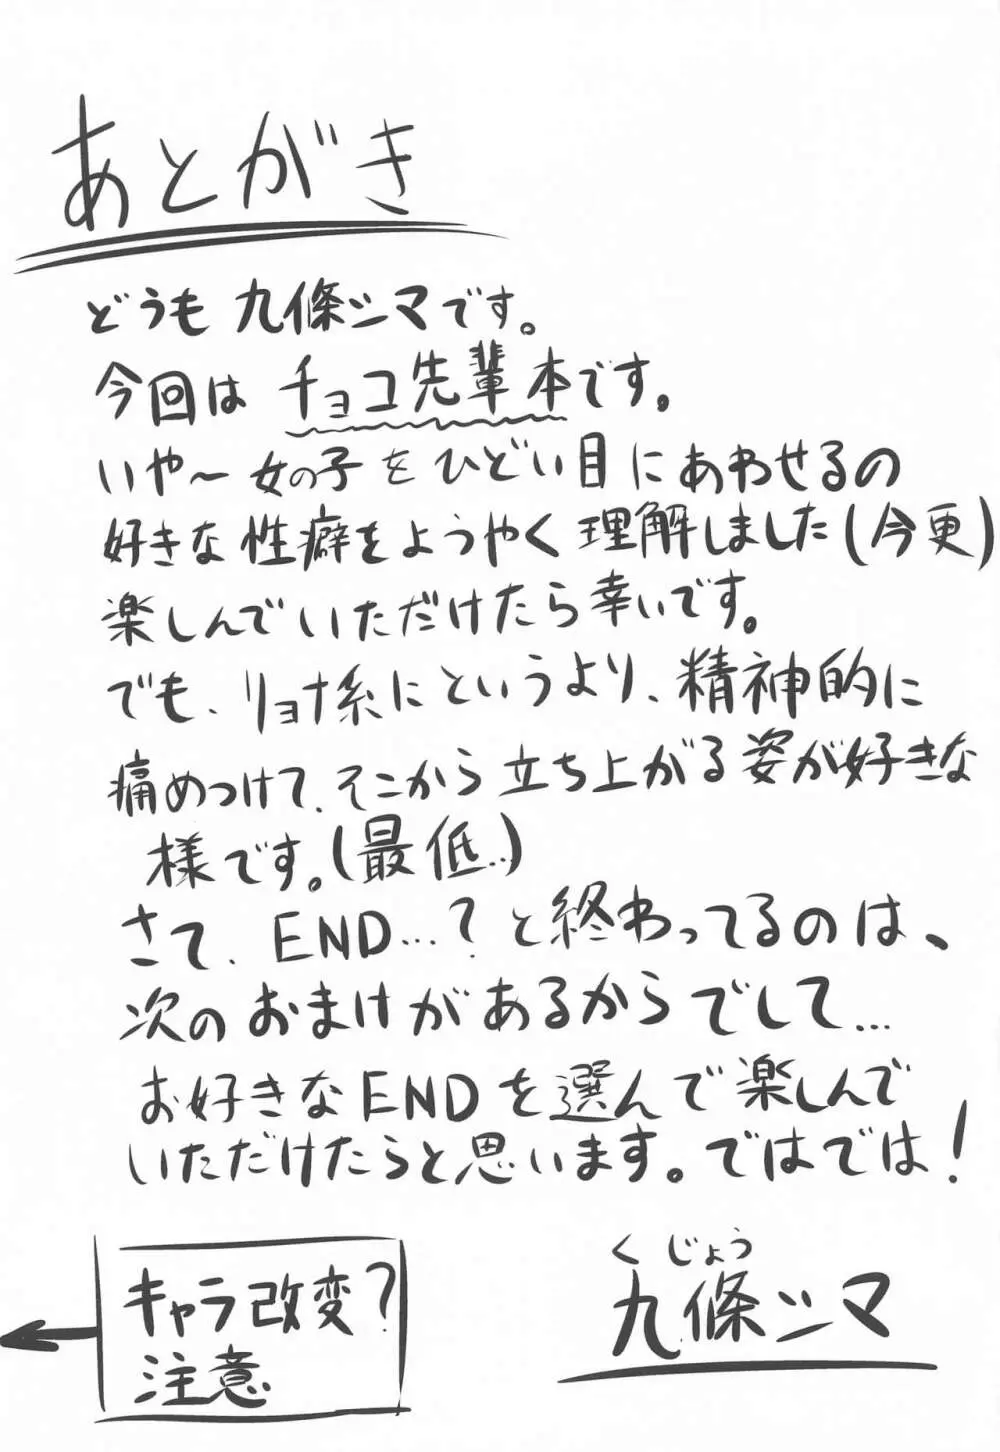 あとがき
どうも九條シマです。
今回はチョコ先輩本です。
いや〜女の子をひどい目にあわせるの
好きな性癖をようやく理解しました(今更)
楽しんでいただけたら幸いです。
でも、リョナ系にというより、精神的に
痛めつけて、そこから立ち上がる姿が好きな
様です。(最低..)
さて、END...?と終わってるのは、
次のおまけがあるからでして...
お好きなENDを選んで楽しんで
いただけたらと思います。ではでは!
キャラ改変?
注意
くじょう
九條シマ